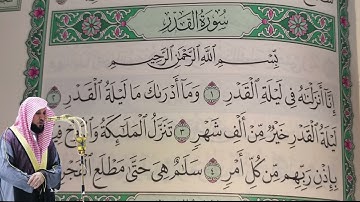 سُورَةُ الْقَدْرِ
بِسْمِ اللَّهِ الرَّحْمَٰنِ الرَّحِيمِ
إِنَّا أَنزَلْنَاهُ فِي لَيْلَةِ الْقَدْرِ ١ وَمَا أَدْرَاكَ مَا لَيْلَةُ الْقَدْرِ
لَيْلَةُ الْقَدْرِ خَيْرٌ مِّنْ أَلْفِ شَهْرٍ ٣ تَنَزَّلُ الْمَلَائِكَةُ وَالرُّوحُ فِيهَا
بِإِذْنِ رَبِّهِم مِّن كُلِّ أَمْرٍ ٤ سَلَامٌ هِيَ حَتَّىٰ مَطْلَعِ الْفَجْرِ